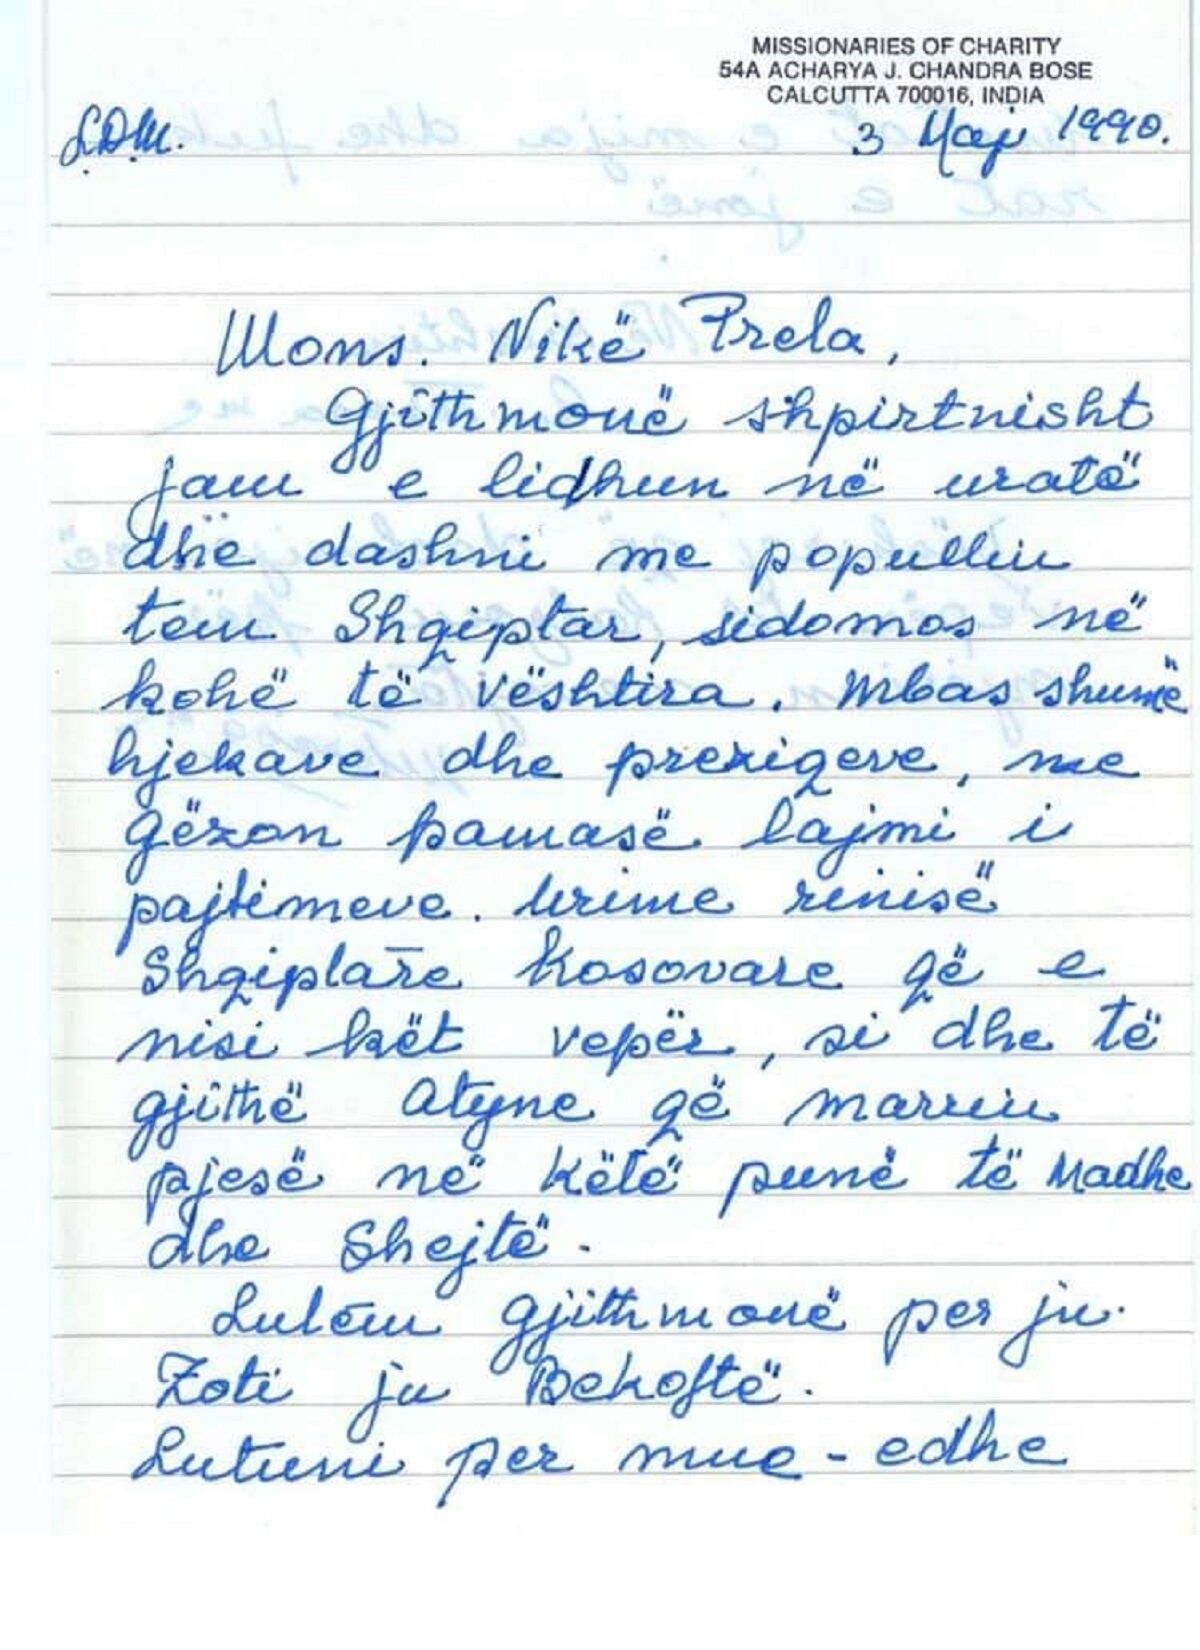 MISSIONARIES OF CHARITY
54A ACHARYA J. CHANDRA BOSE
CALCUTTA 700016, INDIA
L.D.M. 3 Maji 1990.
Mons. Nikë Prela,
Gjithmonë shpirtnisht
jam e lidhun në uratë
dhe dashni me popullin
tem Shqiptar, sidomos në
kohë të vështira. Mbas shumë
hjekave dhe preziqeve, me
gëzon pamasë lajmi i
pajtimeve. Urime rinisë
Shqiptare Kosovare që e
nisi kët vepër, si dhe të
gjithë Atyne që marrin
pjesë në këtë punë të Madhe
dhe Shejtë.
Lutëm gjithmonë per ju.
Zoti ju Bekoftë.
Lutuni per mue - edhe